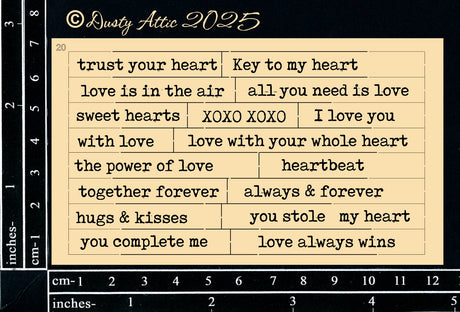 © Dusty Attic 2025
20
trust your heart Key to my heart
love is in the air all you need is love
sweet hearts XOXO XOXO I love you
with love love with your whole heart
the power of love heartbeat
together forever always & forever
hugs & kisses you stole my heart
you complete me love always wins
inches- 1 2 3
cm-1 2 3 4 5 6 7 8
cm-1 2 3 4 5 6 7 8 9 10 11 12
inches- 1 2 3 4 5